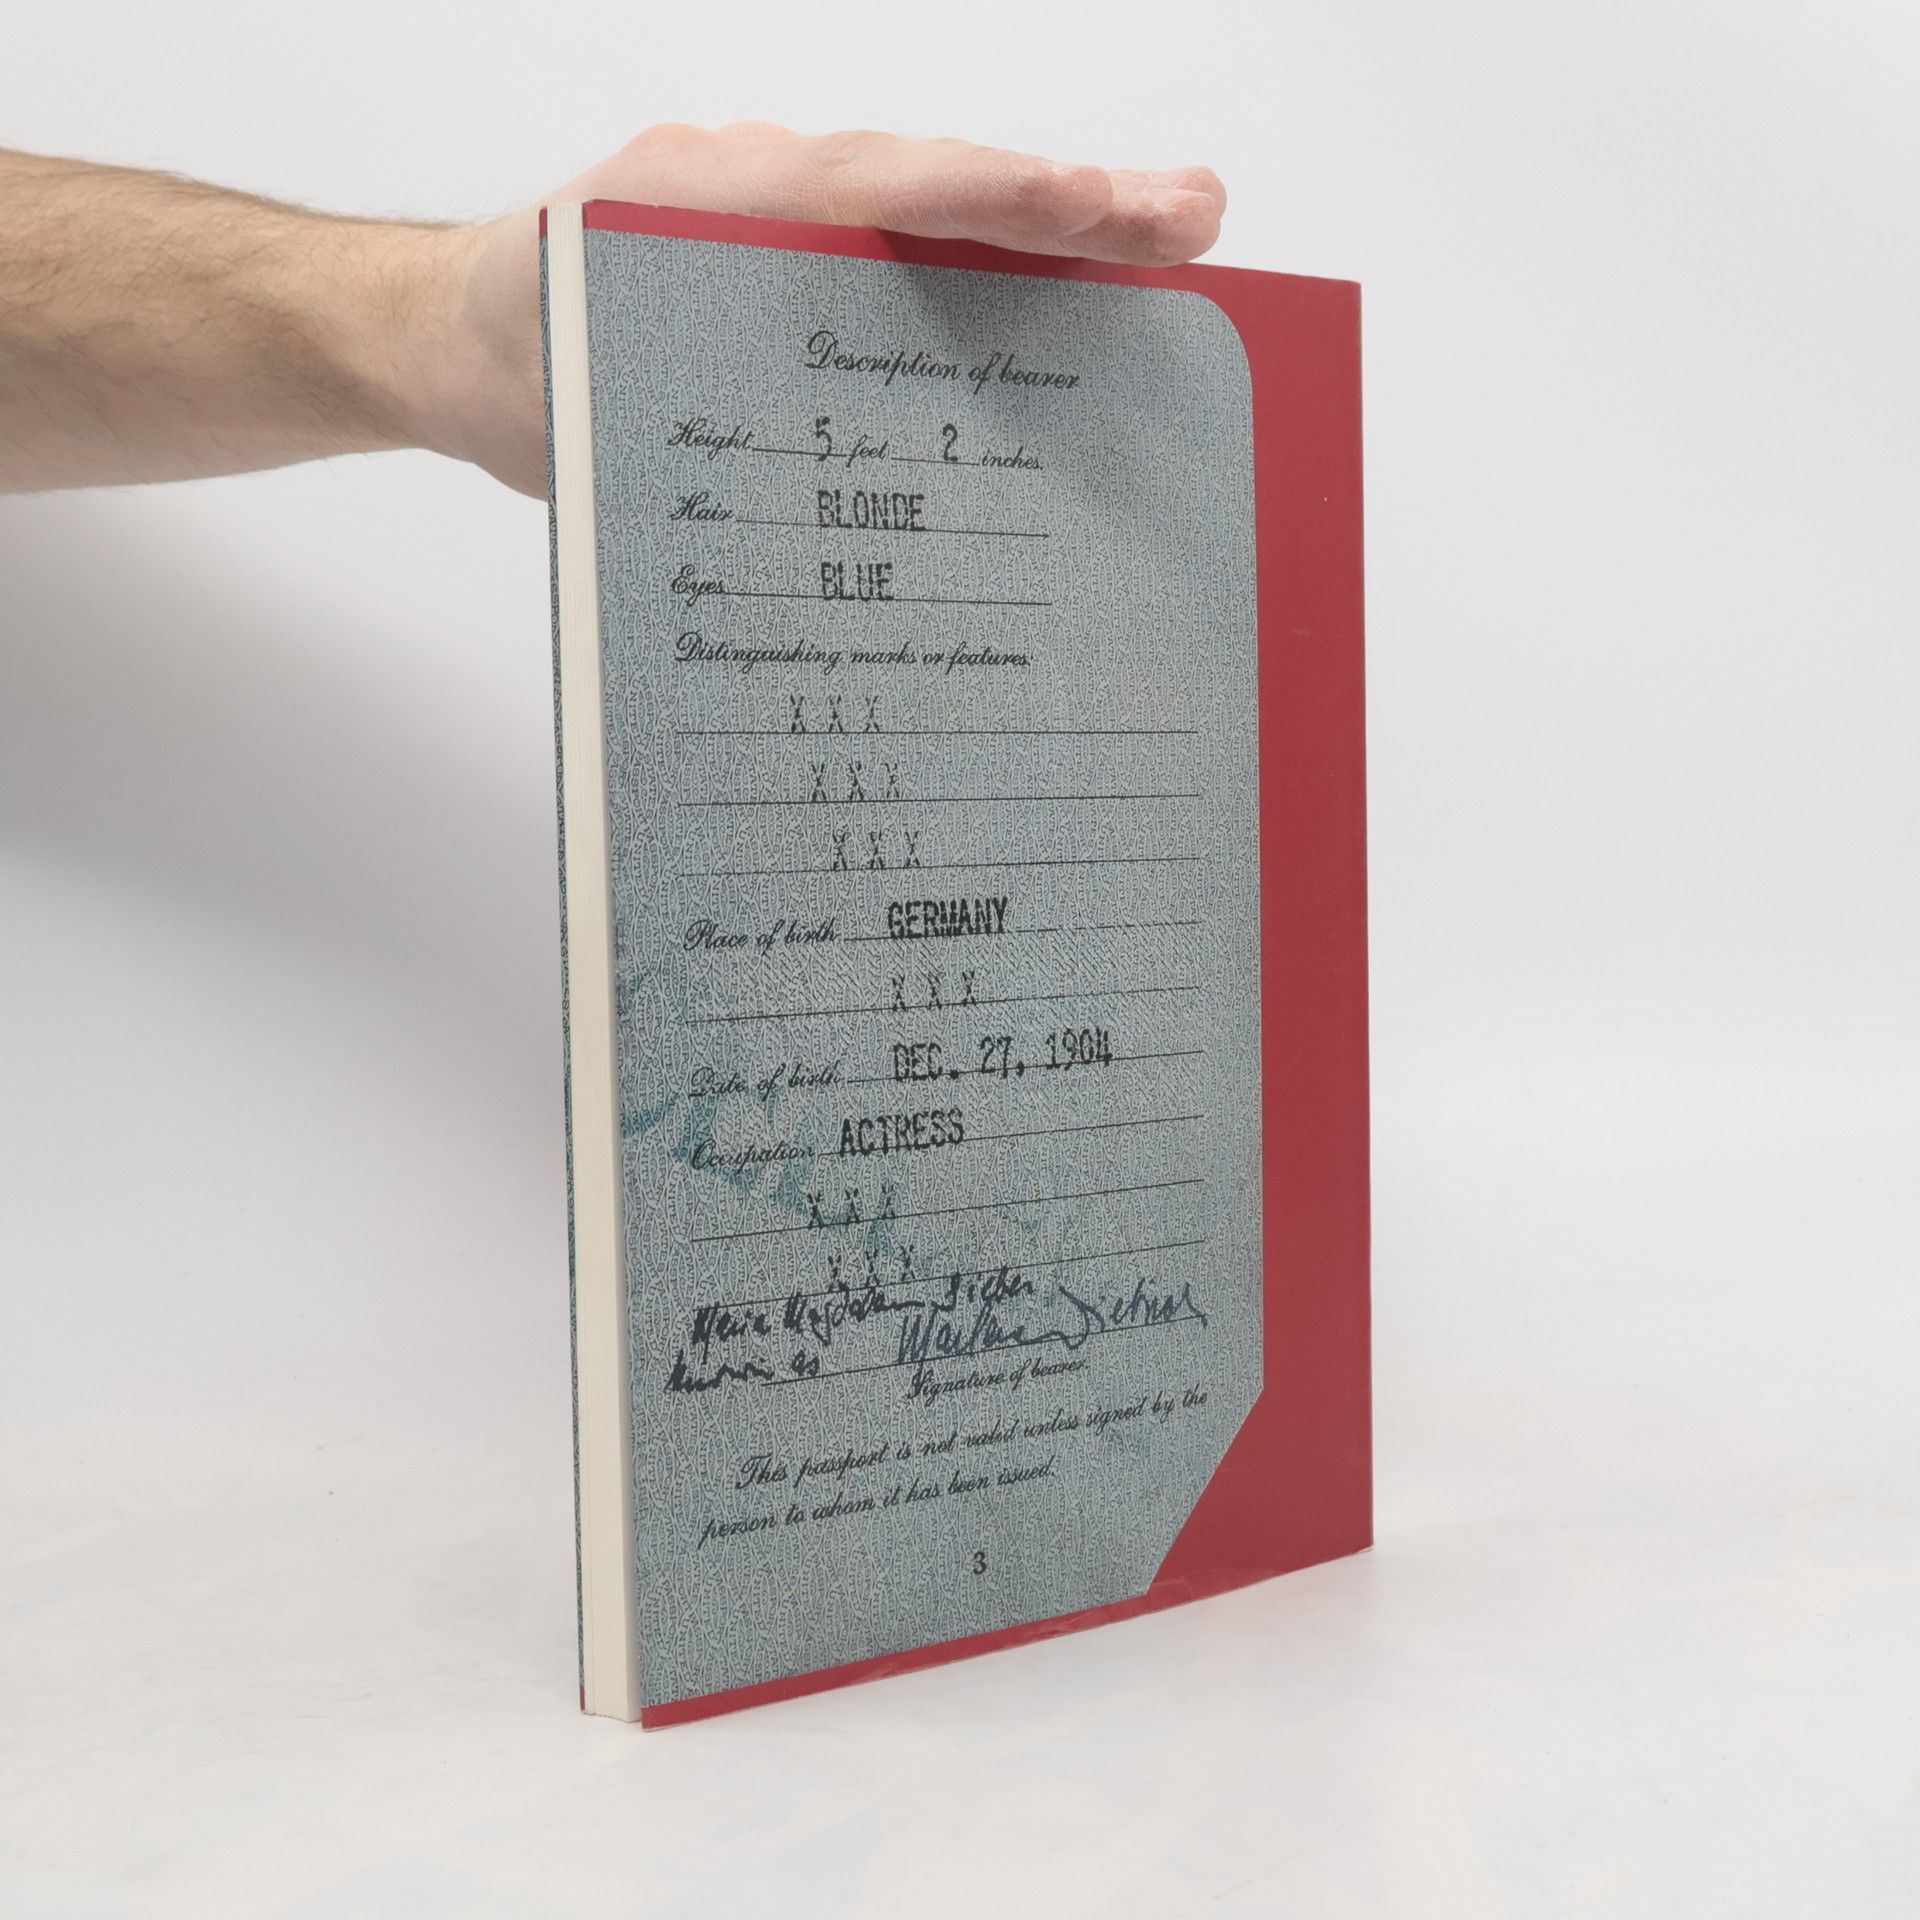 Description of bearer
Height 5 feet 2 inches.
Hair BLONDE
Eyes BLUE
Distinguishing marks or features:
X X X
X X X
X X X
Place of birth GERMANY
X X X
Date of birth DEC. 27, 1904
Occupation ACTRESS
X X X
X X X
Maria Magdalena Sieber
known as Marlene Dietrich
Signature of bearer.
This passport is not valid unless signed by the
person to whom it has been issued.
3